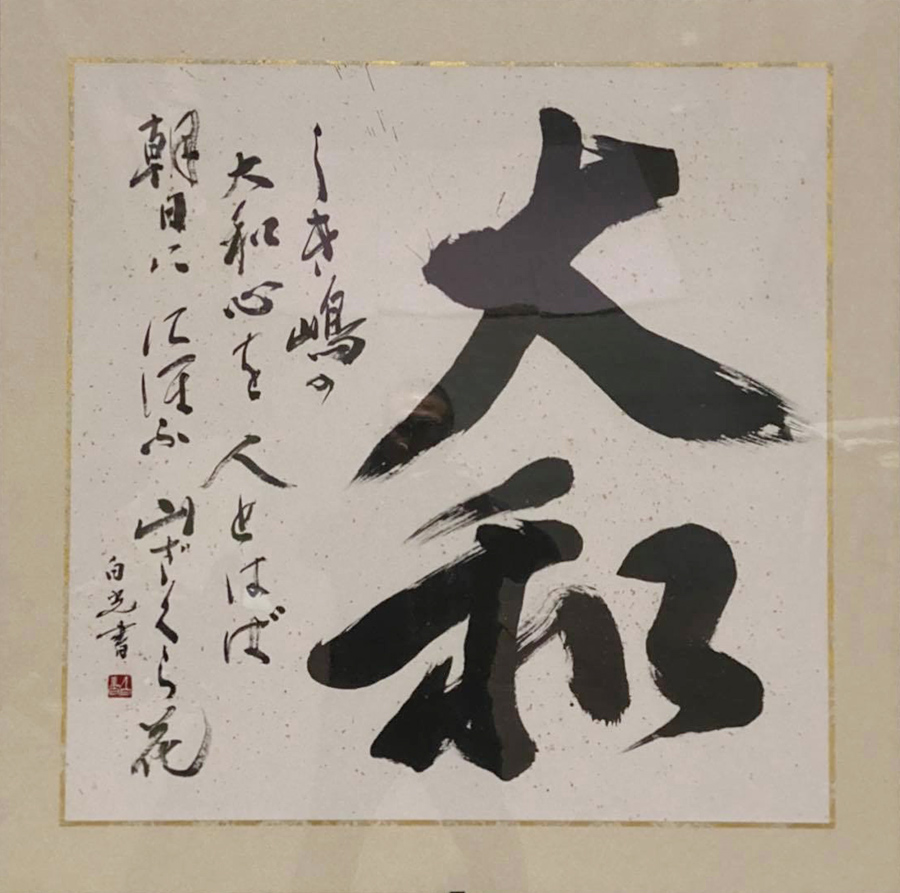 大和
しき嶋の
大和心を人とはば
朝日に にほふ 山ざくら花
白光書